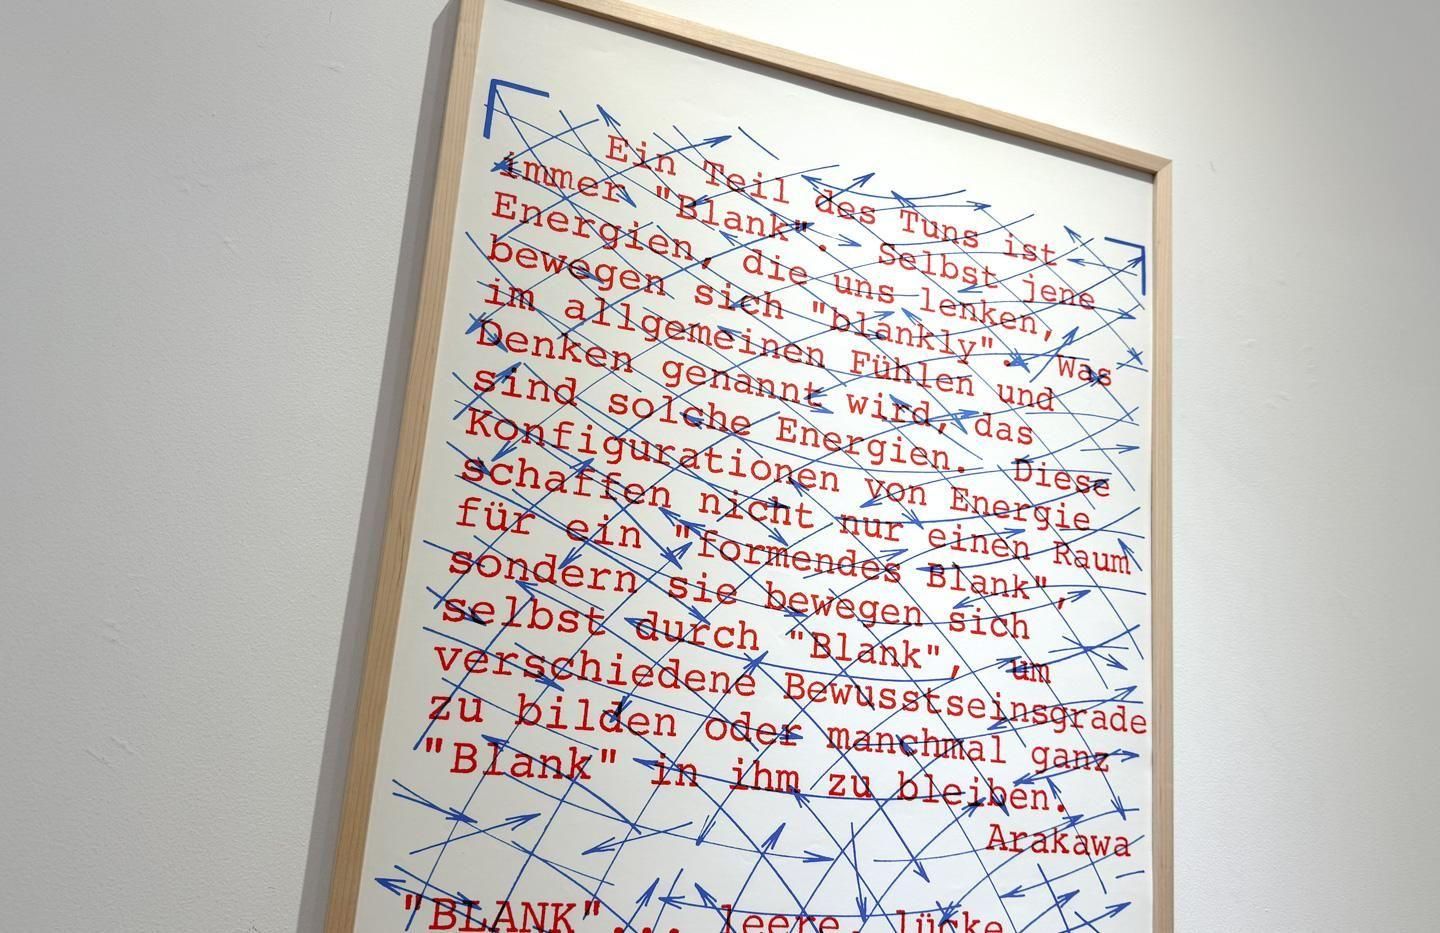 Ein Teil des Tuns ist
immer "Blank". Selbst jene
Energien, die uns lenken,
bewegen sich "blankly". Was
im allgemeinen Fühlen und
Denken genannt wird, das
sind solche Energien. Diese
Konfigurationen von Energie
schaffen nicht nur einen Raum
für ein "formendes Blank",
sondern sie bewegen sich
selbst durch "Blank", um
verschiedene Bewusstseinsgrade
zu bilden oder manchmal ganz
"Blank" in ihm zu bleiben.
Arakawa
"BLANK"... leere, lücke